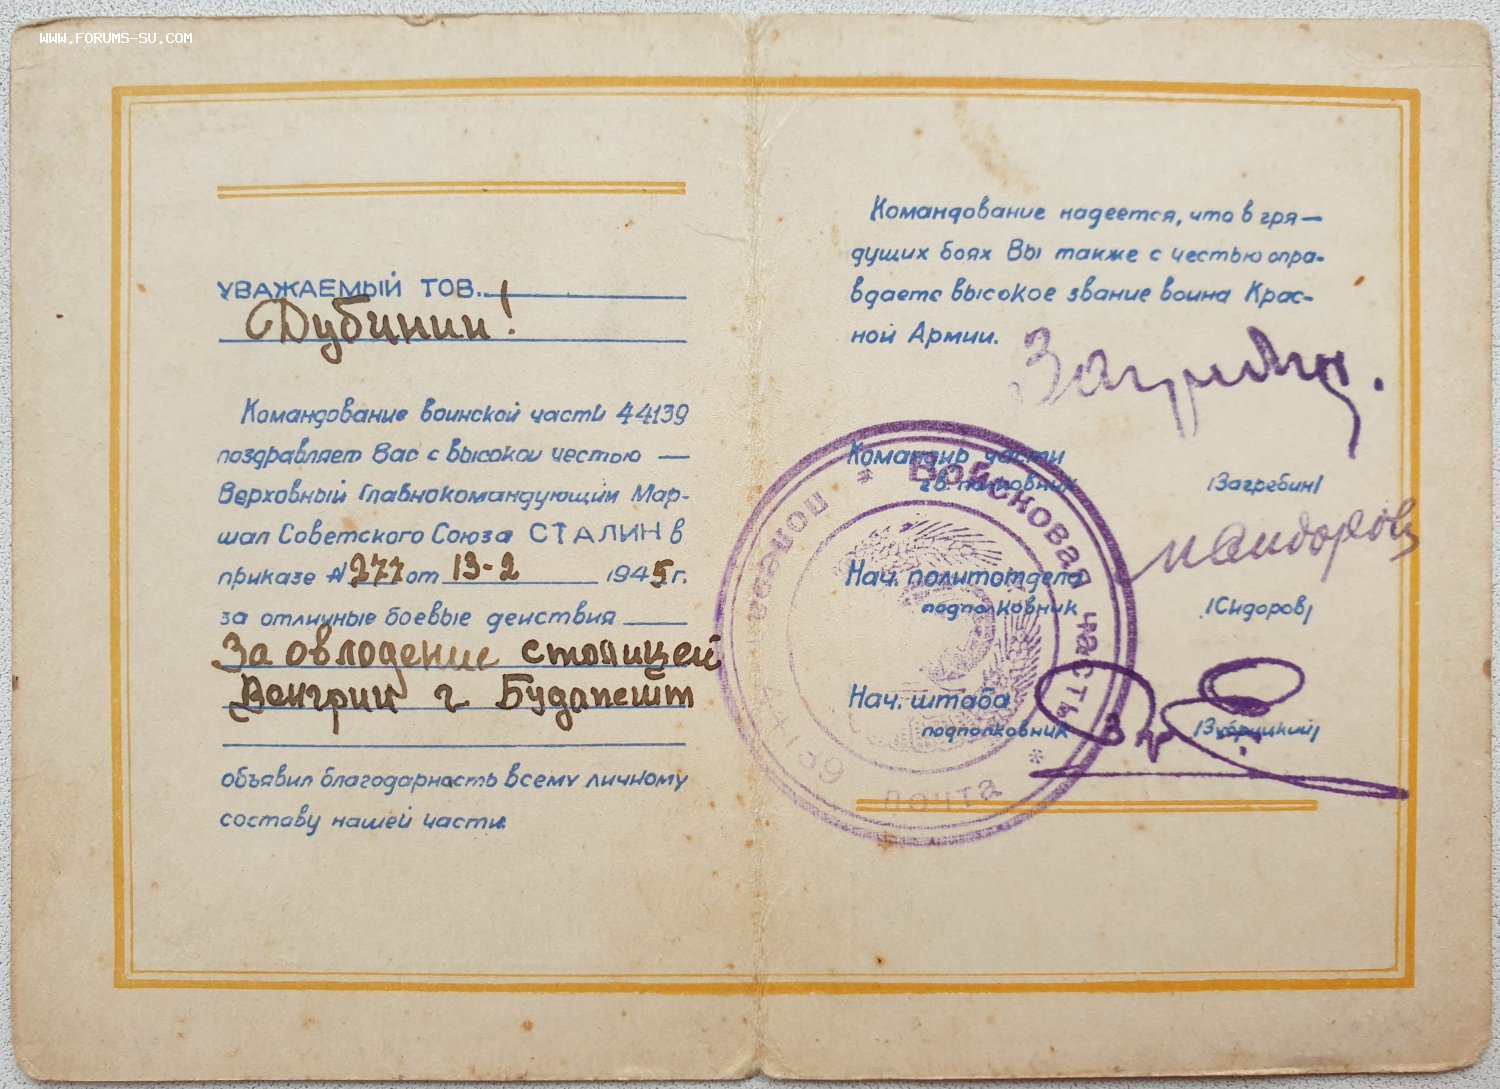 WWW.FORUMS-SU.COM
УВАЖАЕМЫЙ ТОВ.
Дубинин!
Командование воинской части 44139
поздравляет Вас с высокой честью —
Верховный Главнокомандующий Мар-
шал Советского Союза СТАЛИН в
приказе № 277 от 13-2 1945 г.
за отличные боевые действия
За овлодение столицей
Венгрии г Будапешт
объявил благодарность всему личному
составу нашей части.
Командование надеется, что в гря-
дущих боях Вы также с честью опра-
вдаете высокое звание воина Крас-
ной Армии.
Командир части
гв. полковник /Загребин/
Нач. политотдела
подполковник /Сидоров/
Нач. штаба
подполковник
Войсковая часть
* полевая почта 44139 *